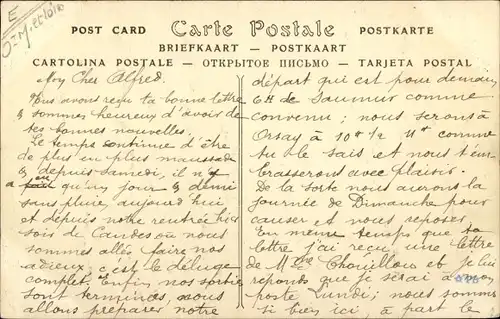 E
POST CARD Carte Postale POSTKARTE
BRIEFKAART — POSTKAART
CARTOLINA POSTALE — ОТКРЫТОЕ ПИСЬМО — TARJETA POSTAL
Mon Cher Alfred.
Nous avons reçu ta bonne lettre
& sommes heureux d'avoir de
tes bonnes nouvelles.
Le temps continue d'être
de plus en plus maussade
& depuis samedi, il n'y
a eu qu'un jour & demi
sans pluie, aujourd'hui
et depuis notre rentrée hier
soir de Candes où nous
sommes allés faire nos
adieux, c'est le déluge
complet. Enfin nos sorties
sont terminées, nous
allons préparer notre
départ qui est pour demain
6H de Saumur comme
convenu; nous serons à
Orsay à 10H 1/2 comme
tu le sais et nous t'em
brasserons avec plaisir.
De la sorte nous aurons la
journée de Dimanche pour
causer et nous reposer.
En même temps que ta
lettre j'ai reçu une lettre
de Mme Chouillou et je lui
réponds que je serai à mon
poste Lundi; nous sommes
si bien ici, à part le